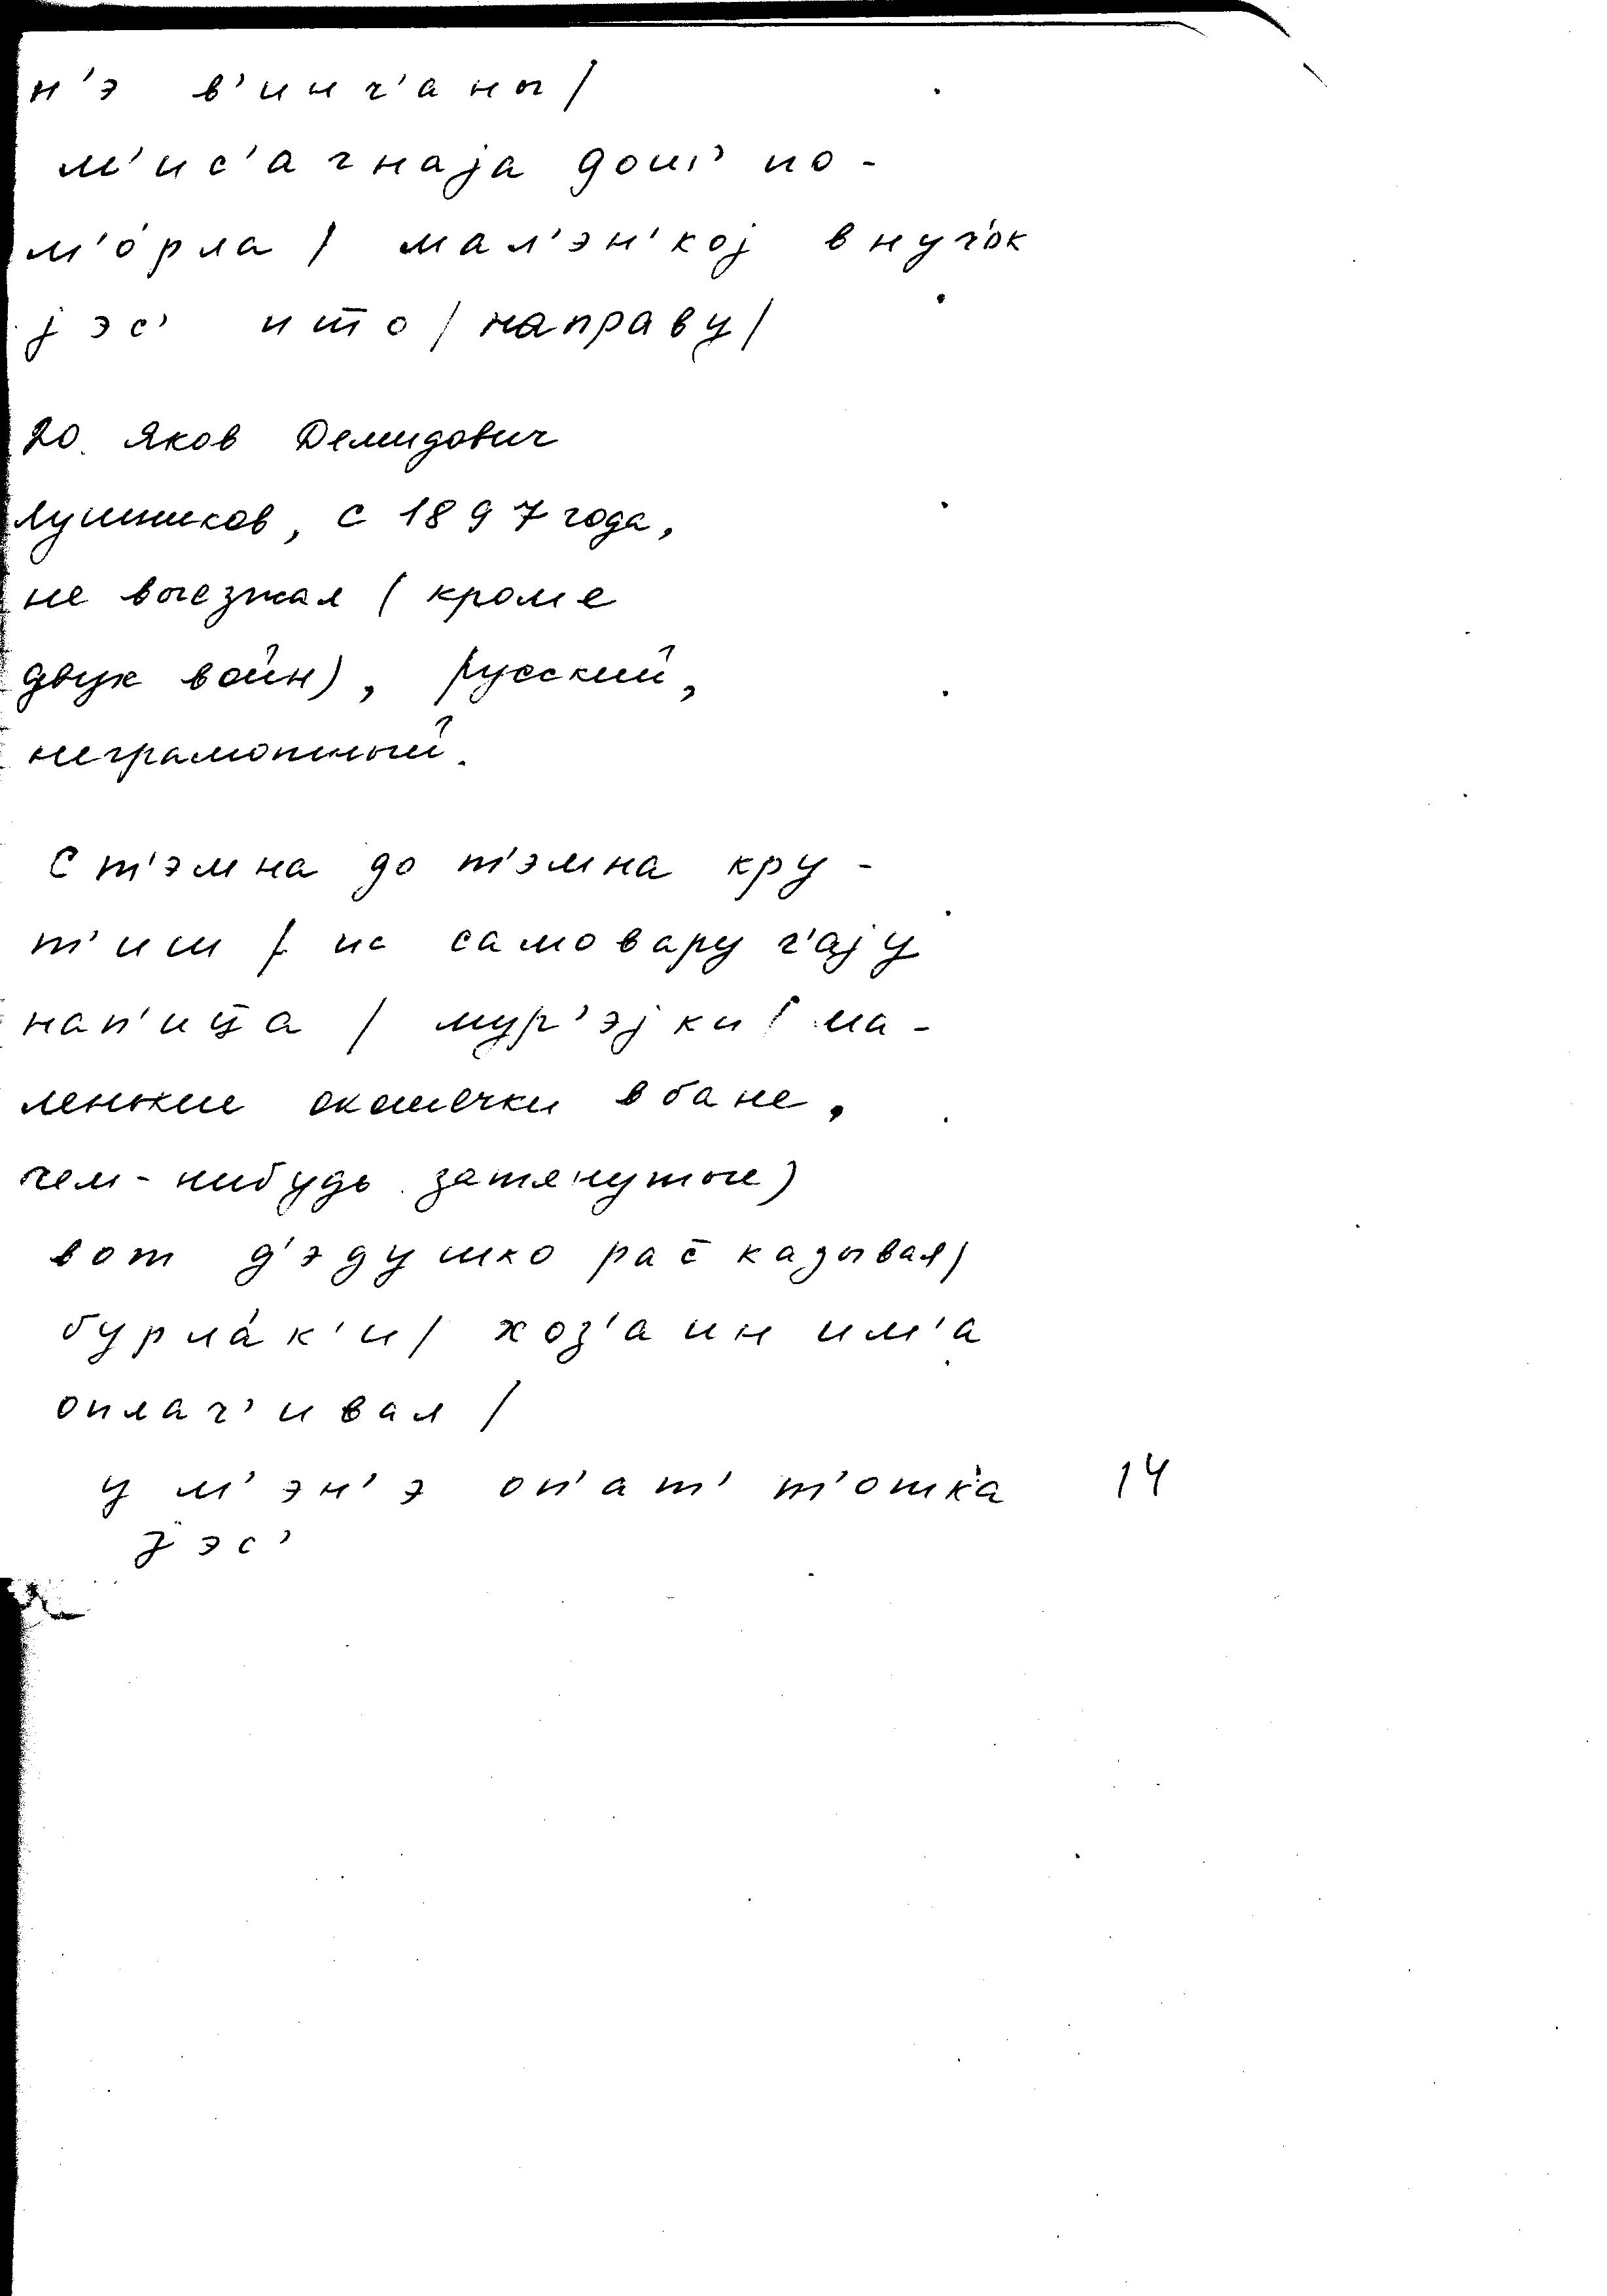 н'э в'инч'аны/
м'ис'ачнаjа дош' по-
м'о́рла / мал'эн'коj внуч'ок
jэс' што̄ / направу/
20. Яков Демидович
Лушников, с 1897 года,
не выезжал (кроме
двух войн), русский,
неграмотный.
С т'эмна до т'эмна кру-
т'иш / ис самовару ч'аjу
нап'иц̄а / мур'эjки (ма-
ленькие окошечки в бане,
чем-нибудь затянутые)
вот д'эдушко рас̄казывал/
бурла́к'и/ хоз'аин им'а
оплач'ивал /
у м'эн'э оп'ат' т'отк'а
jэс'
14